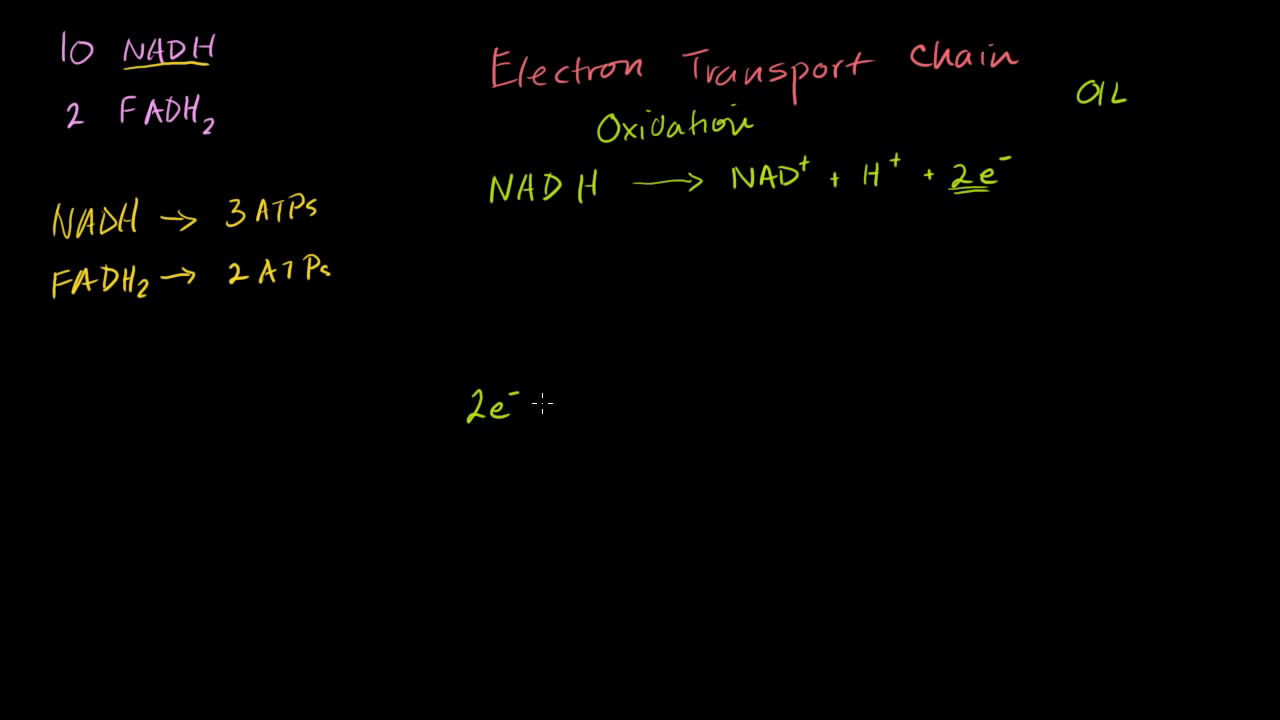 10 NADH
2 FADH₂
NADH → 3 ATPs
FADH₂ → 2 ATPs
Electron Transport Chain
OIL
Oxidation
NADH → NAD⁺ + H⁺ + 2e⁻
2e⁻